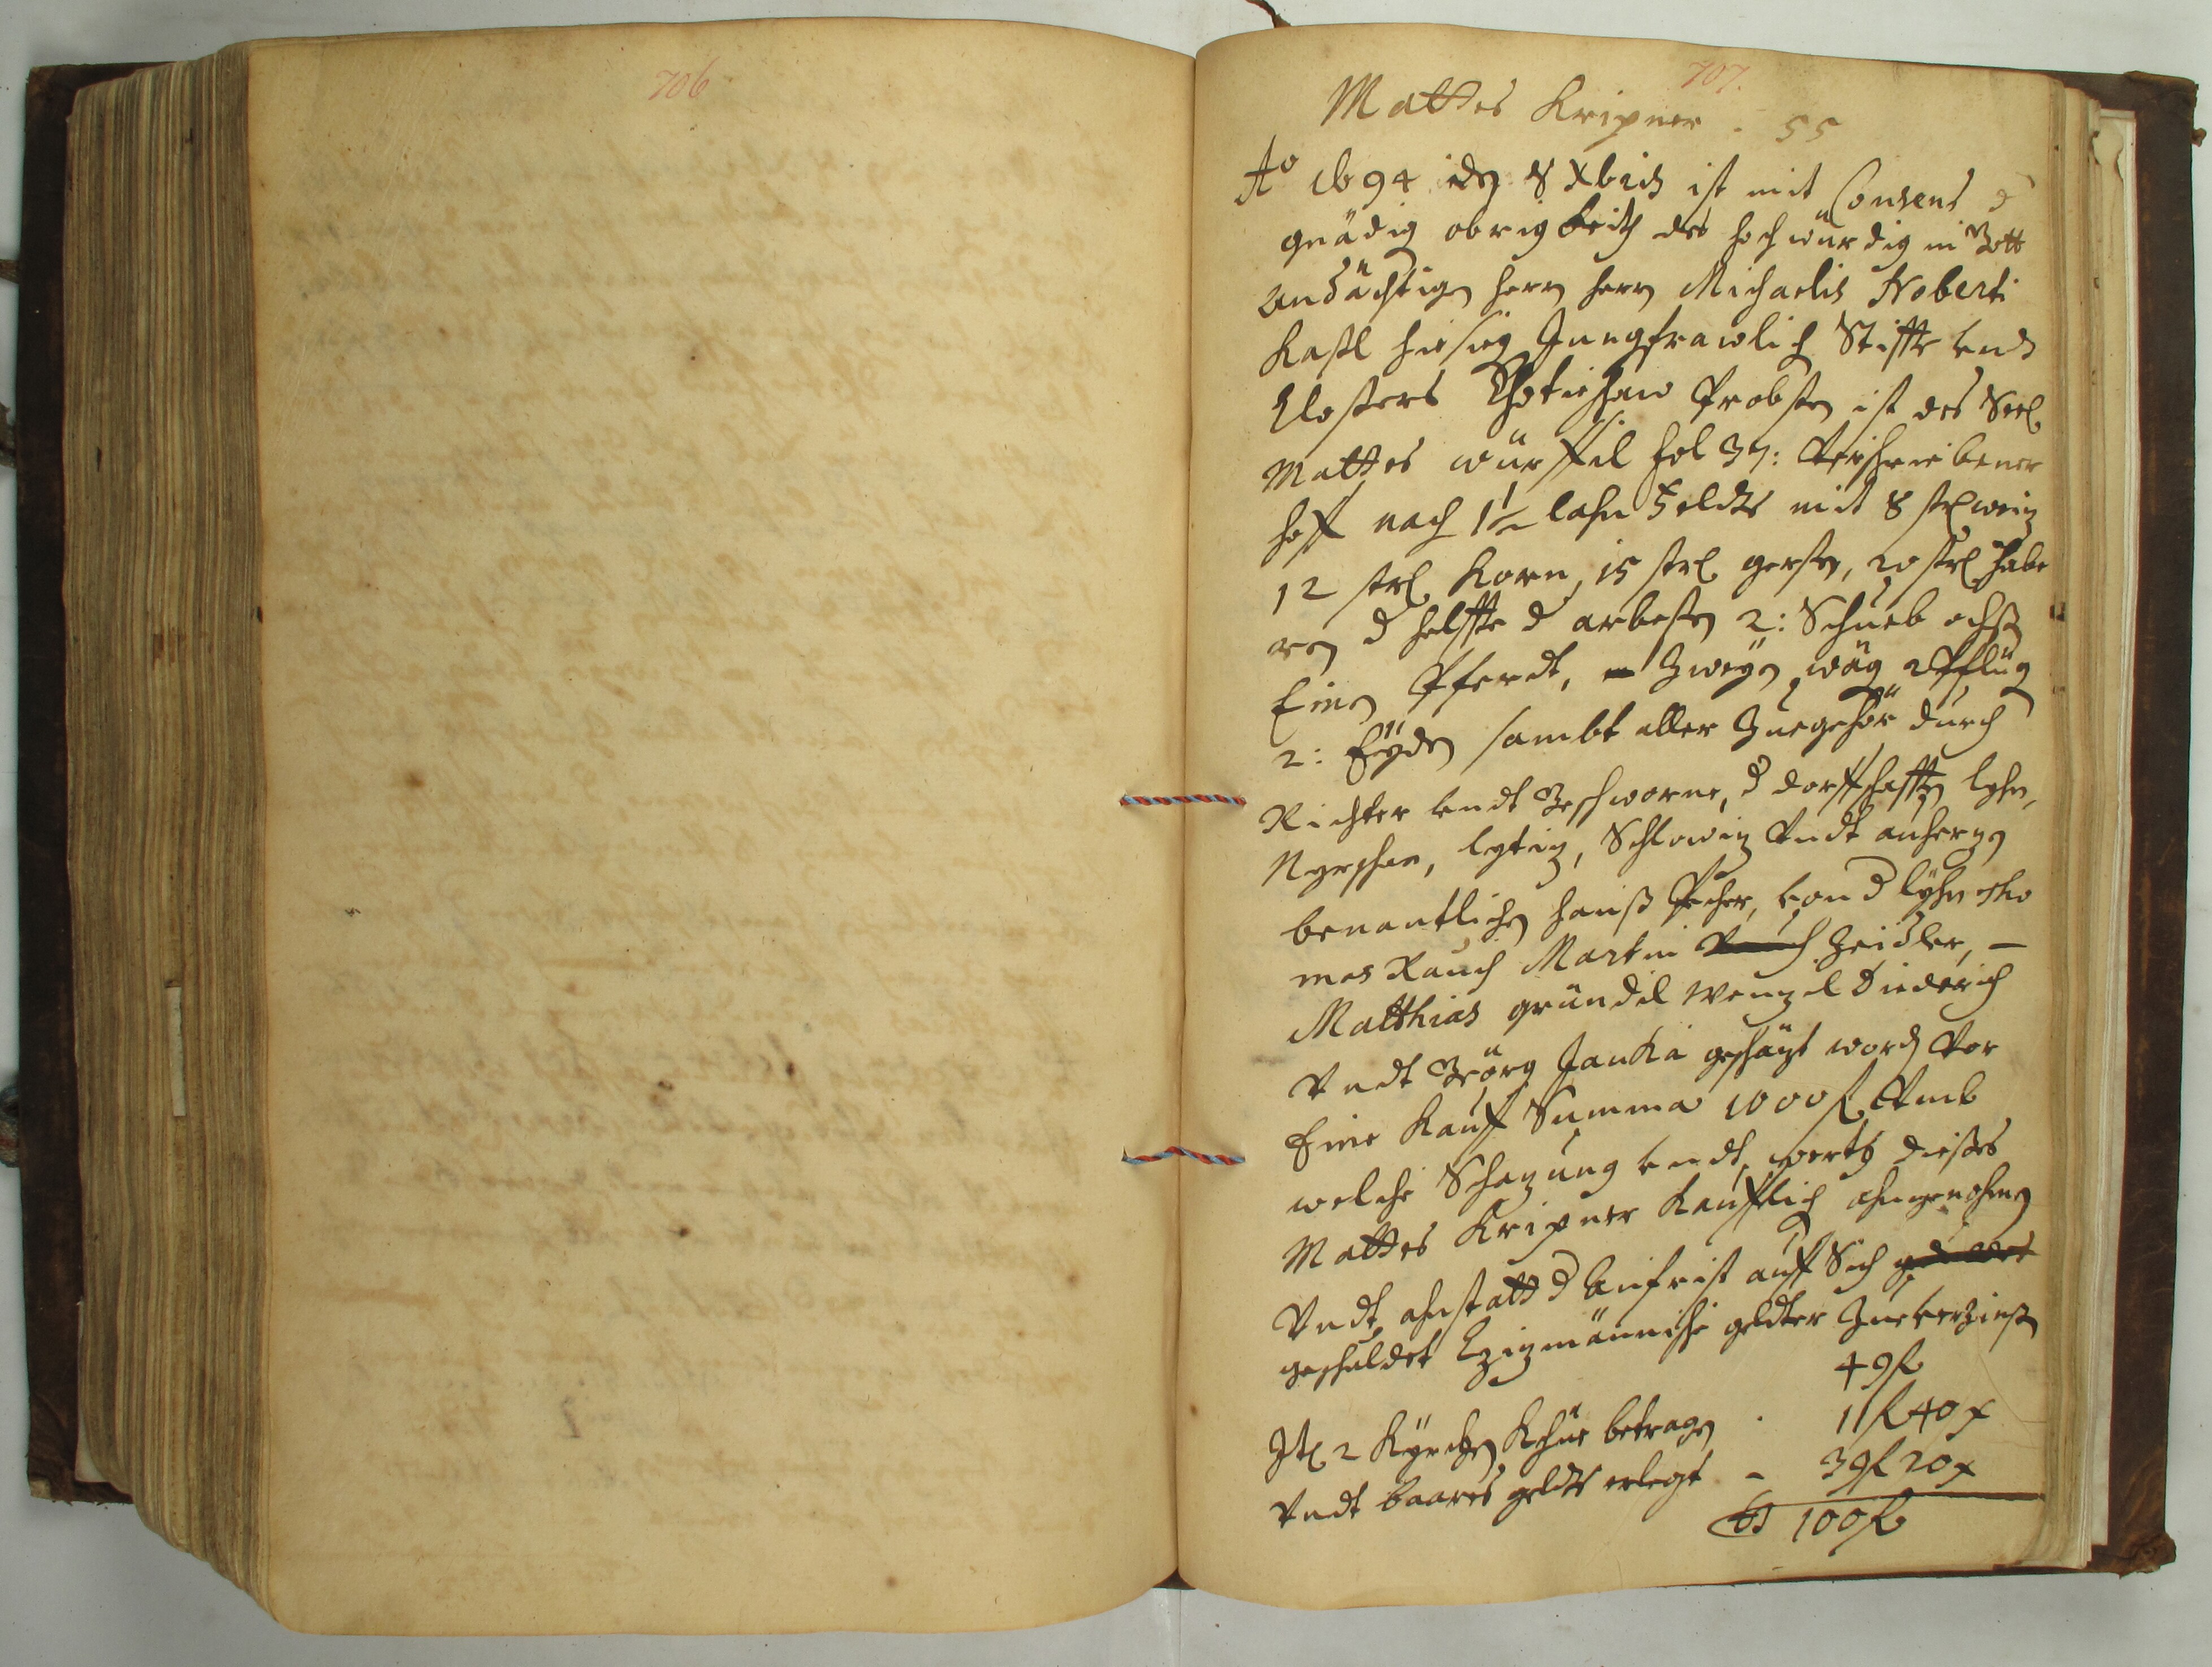 706
707.
Mattes Kripner . 55
Ao 1694 den 8 Xbris ist mit Consens d
gnädig obrigkeith des hochwürdig in Gott
Andächtigen herrn herrn Michaelis Noberti
Kastl hiesig Jungfrawlich Stiffts undt
Closters Chotieschaw Probsten ist des Seel.
Mattes würffel fol 37: Verschriebener
hoff nach 1½ lahn Feldts mit 8 strl weiz
12 strl Korn, 15 strl gersten, 20 strl habe
ren d helffte d arbesen 2: Schueb ochsen
Einen Pferdt, Zweyen wäg 2 Pflüg
2: Eyden sambt aller Zuegehör durch
Richter undt Geschworne, d dorffschafften lyhn,
Nyrschan, lytiz, Schlowiz Undt auherzen
benantlichen hanß Pecher, von d lyhn Tho
mas Rauch Martin Zeidler, –
Matthias gründel Wenzel Diederich
Undt Görg Janka geschäzt worden Vor
Eine Kauff Summa 1000 f Umb
welche Schazung undt werth dieses
Mattes Kripner Keufflich ahngenohmen
Undt ahnstatt d Anfrist auff Sich
geschuldet Ezizmännische gelder Zueverzinsen
49 f
Itl 2 Kyrchen Khüe betragen . 11 f 40 x
Undt baares geldts erlegt – 39 f 20 x
100 f